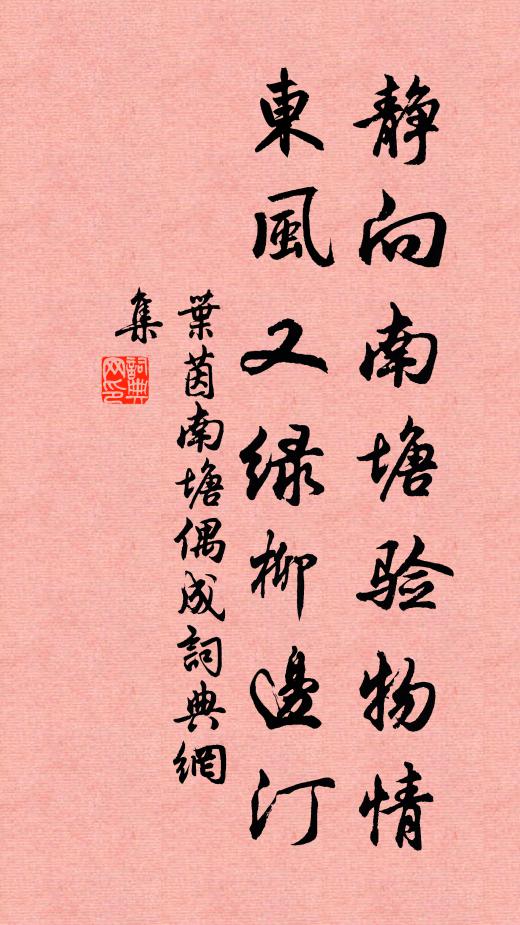 静向南塘验物情
東風又緑柳邊汀
葉茵南塘偶成詞典網
集
詞典
网印